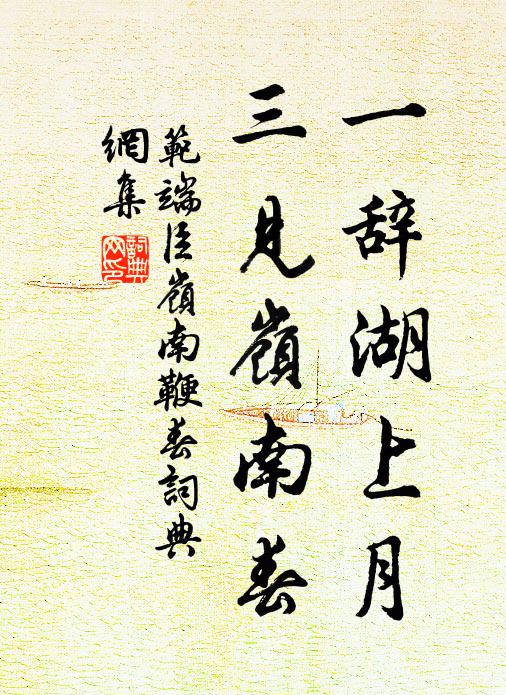 一辞湖上月
三見嶺南春
範端臣嶺南鞭春詞典
網集
詞典網印